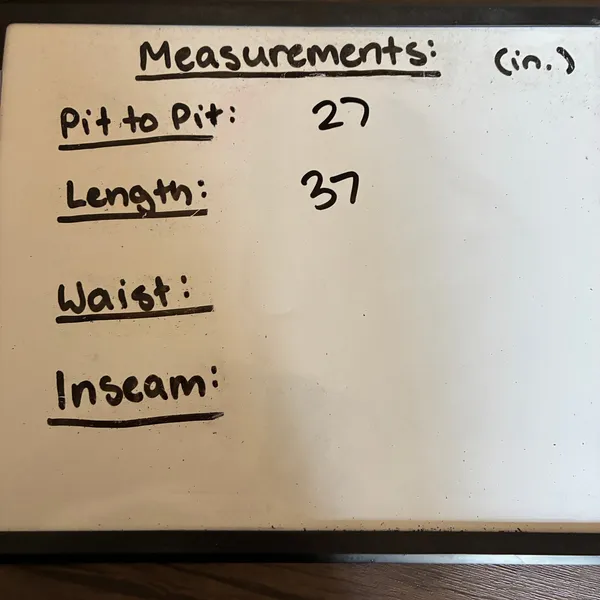 Measurements: (in.)
Pit to Pit: 27
Length: 37
Waist:
Inseam: